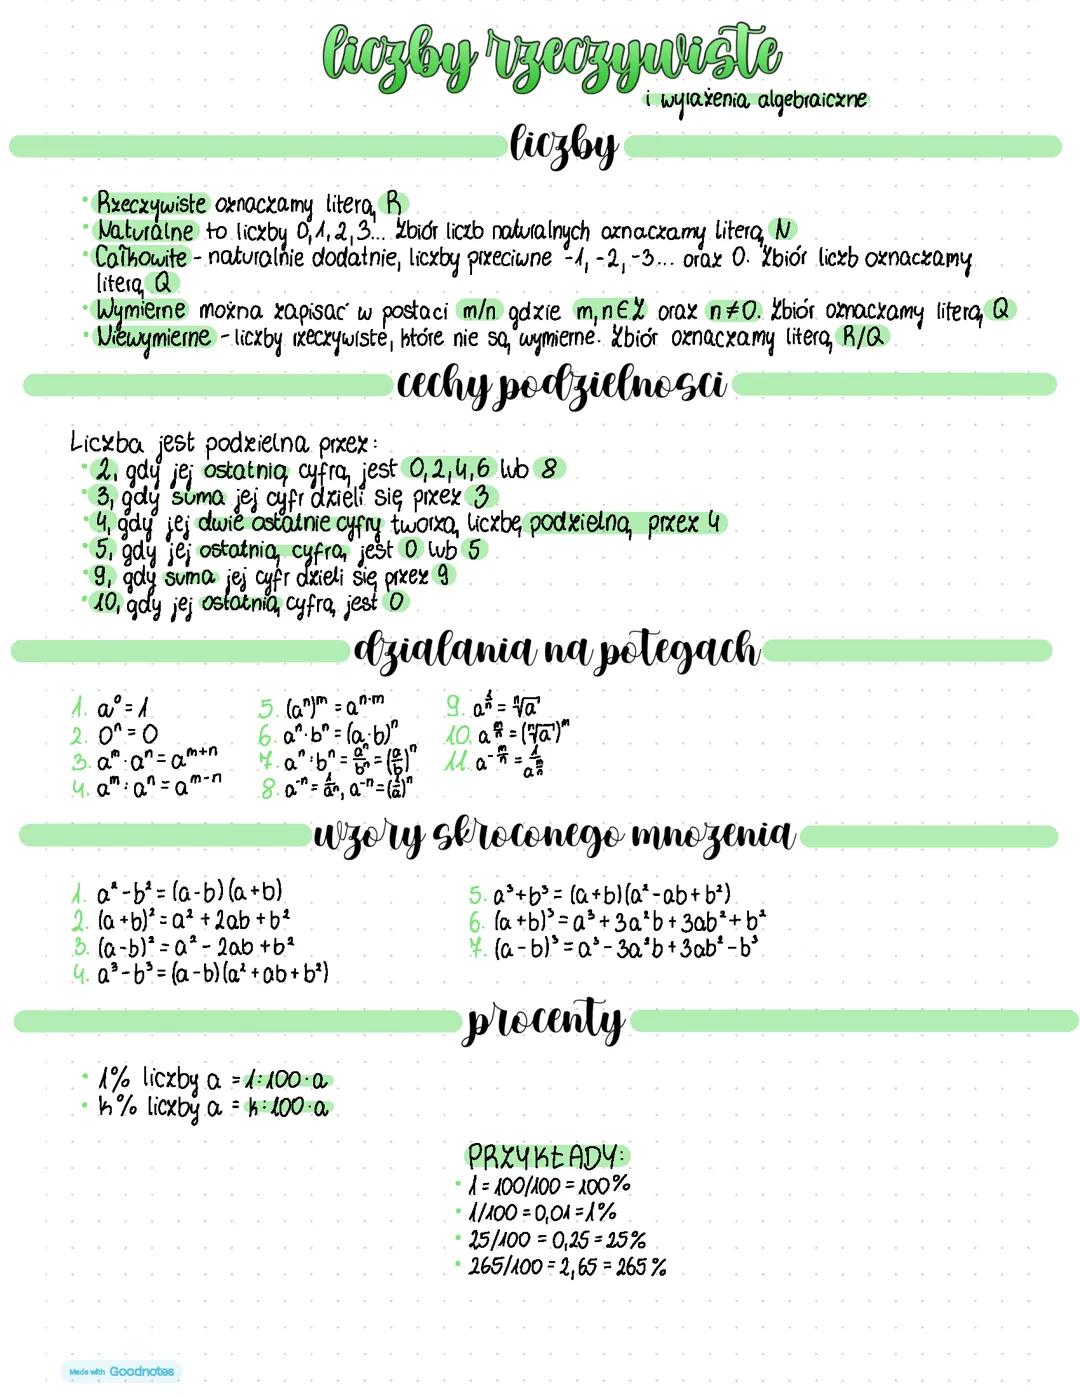 liczby rzeczywiste
i wyrażenia algebraiczne
liczby
• Rzeczywiste oznaczamy literą R
• Naturalne to liczby 0,1,2,3... Zbiór liczb naturalnych oznaczamy literą N
• Całkowite - naturalnie dodatnie, liczby przeciwne -1, -2, -3... oraz 0. Zbiór liczb oznaczamy
literą Q
• Wymierne można zapisać w postaci m/n gdzie m,n∈Z oraz n≠0. Zbiór oznaczamy literą Q
• Niewymierne - liczby rzeczywiste, które nie są wymierne. Zbiór oznaczamy literą R/Q
cechy podzielnosci
Liczba jest podzielna przez:
• 2, gdy jej ostatnią cyfrą jest 0,2,4,6 lub 8
• 3, gdy suma jej cyfr dzieli się przez 3
• 4, gdy jej dwie ostatnie cyfry tworzą liczbę podzielną przez 4
• 5, gdy jej ostatnią cyfrą jest 0 lub 5
• 9, gdy suma jej cyfr dzieli się przez 9
• 10, gdy jej ostatnią cyfrą jest 0
dzialania na potegach
1. a⁰ = 1
2. 0ⁿ = 0
3. aᵐ · aⁿ = aᵐ⁺ⁿ
4. aᵐ : aⁿ = aᵐ⁻ⁿ
5. (aⁿ)ᵐ = a^(n·m)
6. aⁿ · bⁿ = (a·b)ⁿ
7. aⁿ : bⁿ = aⁿ/bⁿ = (a/b)ⁿ
8. a⁻ⁿ = 1/aⁿ, a⁻ⁿ = (1/a)ⁿ
9. a^(1/n) = ⁿ√a
10. a^(m/n) = (ⁿ√a)ᵐ
11. a^(-m/n) = 1/a^(m/n)
wzory skroconego mnozenia
1. a² - b² = (a-b)(a+b)
2. (a+b)² = a² + 2ab + b²
3. (a-b)² = a² - 2ab + b²
4. a³ - b³ = (a-b)(a² + ab + b²)
5. a³ + b³ = (a+b)(a² - ab + b²)
6. (a+b)³ = a³ + 3a²b + 3ab² + b²
7. (a-b)³ = a³ - 3a²b + 3ab² - b³
procenty
• 1% liczby a = 1:100·a
• k% liczby a = k:100·a
PRZYKŁADY:
• 1 = 100/100 = 100%
• 1/100 = 0,01 = 1%
• 25/100 = 0,25 = 25%
• 265/100 = 2,65 = 265%
Made with Goodnotes